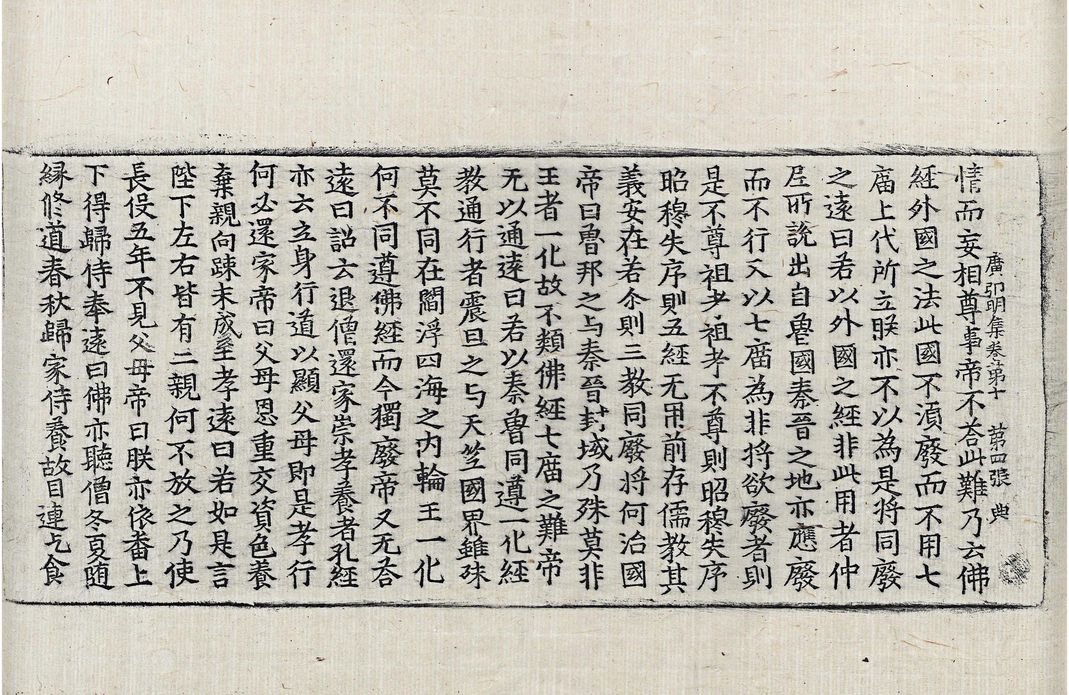 廣弘明集卷第十　第四張　典
情而妄相尊事帝不荅此難乃云佛
經外國之法此國不湏廢而不用七
廟上代所立朕亦不以為是將同廢
之遠曰若以外國之經非此用者仲
尼所說出自魯國秦晉之地亦應廢
而不行又以七廟為非將欲廢者則
是不尊祖考祖考不尊則昭穆失序
昭穆失序則五經无用前存儒教其
義安在若尒則三教同廢將何治國
帝曰魯邦之与秦晉封域乃殊莫非
王者一化故不類佛經七廟之難帝
无以通遠曰若以秦魯同遵一化經
教通行者震旦之与天竺國界雖殊
莫不同在閻浮四海之内輪王一化
何不同遵佛經而今獨廢帝又无荅
遠曰詔云退僧還家崇孝養者孔經
亦云立身行道以顯父母即是孝行
何必還家帝曰父母恩重交資色養
棄親向踈未成至孝遠曰若如是言
陛下左右皆有二親何不放之乃使
長役五年不見父母帝曰朕亦依番上
下得歸侍奉遠曰佛亦聽僧冬夏随
縁修道春秋歸家侍養故目連乞食